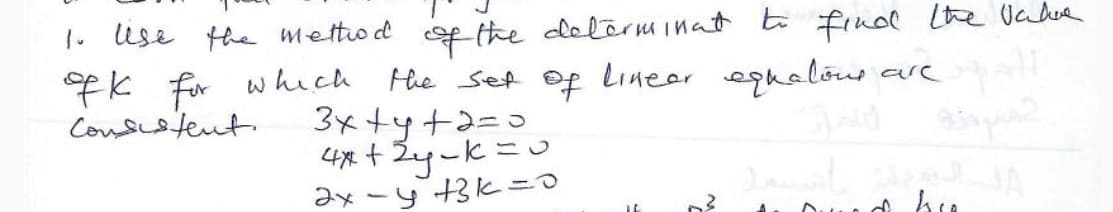 1. Use the method of the determinat to find the Value
of K for which the set of linear equations are
Consistent. 3x + y + 2 = 0
4x + 2y - k = 0
2x - y + 3k = 0